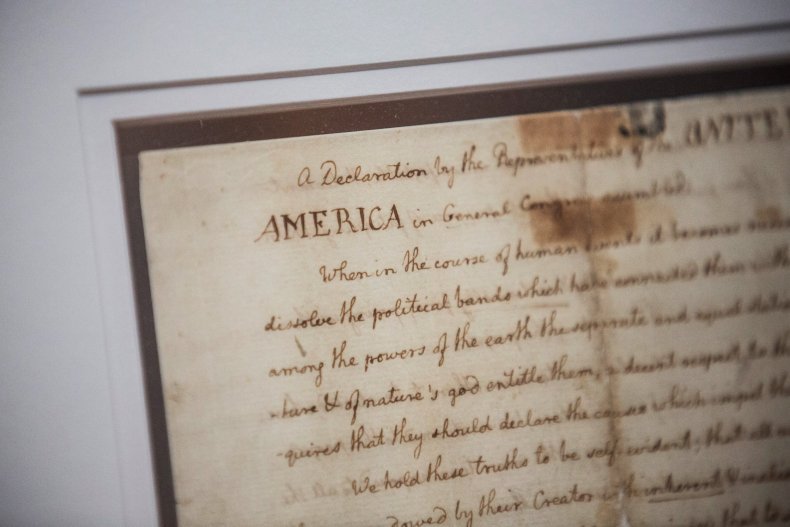 A Declaration by the Representatives of the UNITE
AMERICA in General Congress assembled.
When in the course of human events it becomes
dissolve the political bands which have connected them with
among the powers of the earth the separate and equal
-ture & of nature's god entitle them, a decent respect to th
-quires that they should declare the causes which impel th
We hold these truths to be self-evident; that all
dowed by their Creator with inherent &